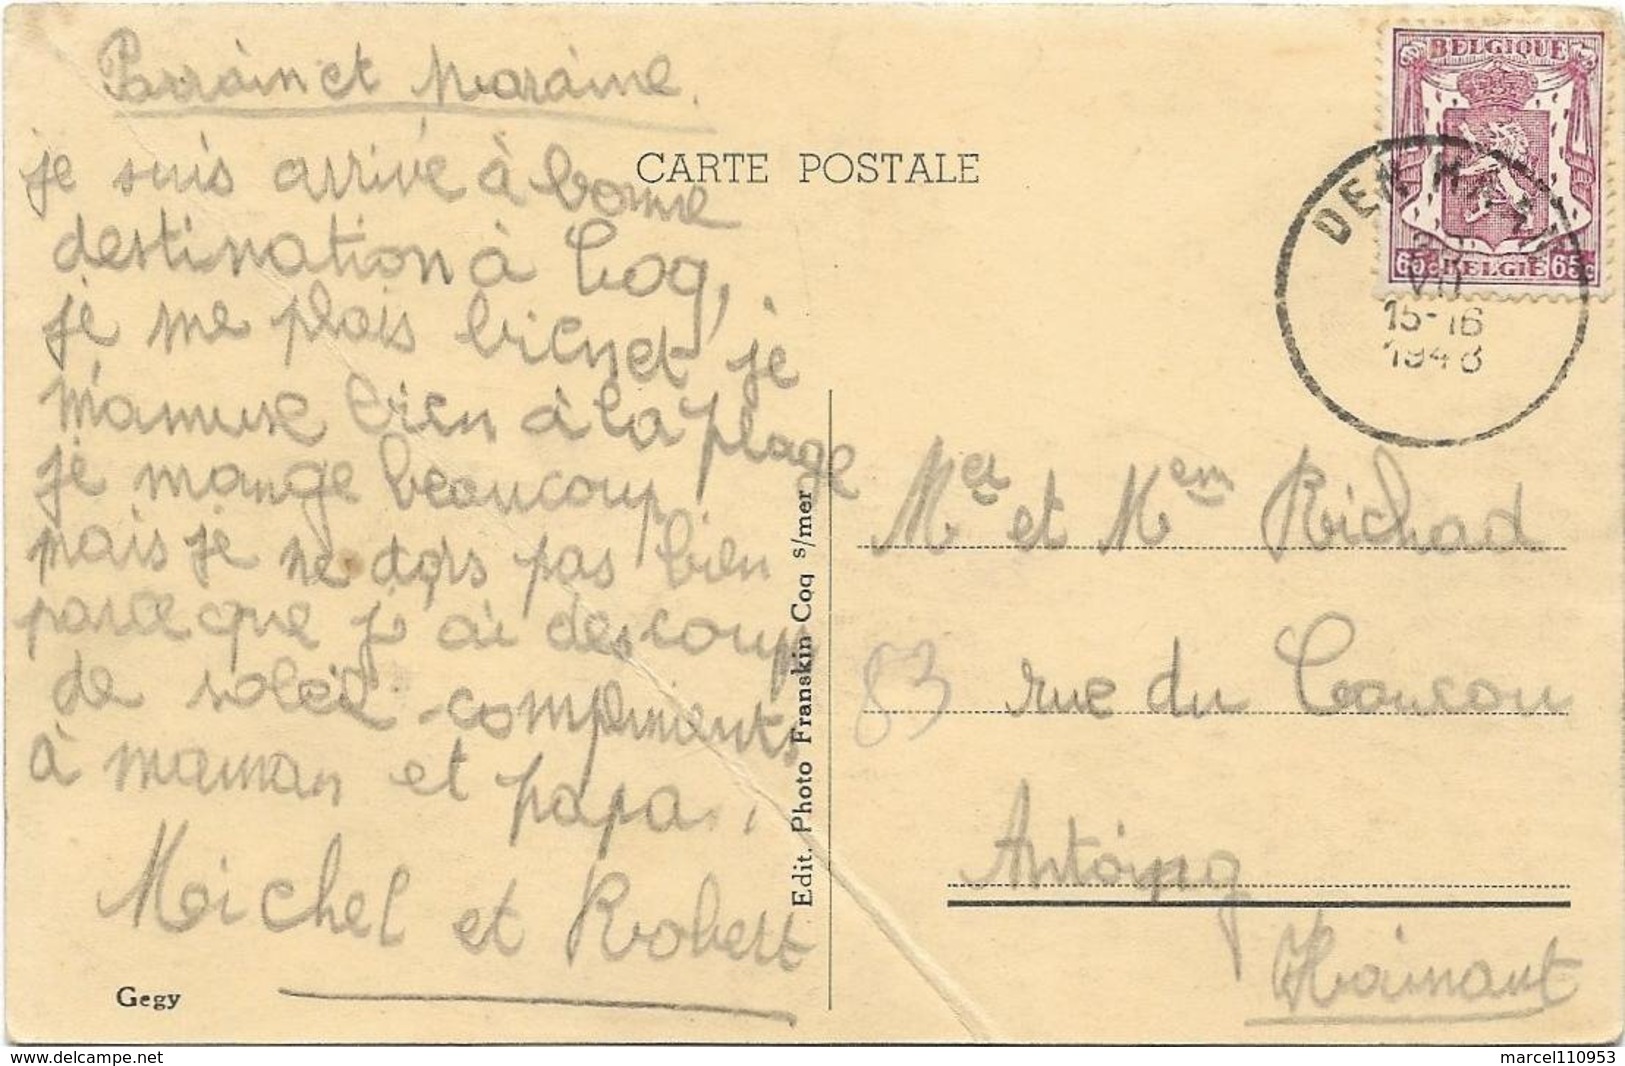 Parrain et Maraine.
je suis arrivé à bonne
destination à Coq,
je me plais bien et je
m'amuse bien à la plage
je mange beaucoup
mais je ne dors pas bien
parce que j ai des coup
de soleil - compliments
à maman et papa.
Michel et Robert
Gegy
CARTE POSTALE
Edit. Photo Franskin Coq s/mer
BELGIQUE
65c BELGIE 65c
DEN HAAN
VII
15-16
1948
Mer et Mem Richad
83 rue du Coucou
Antoing
Hainaut
marcel110953